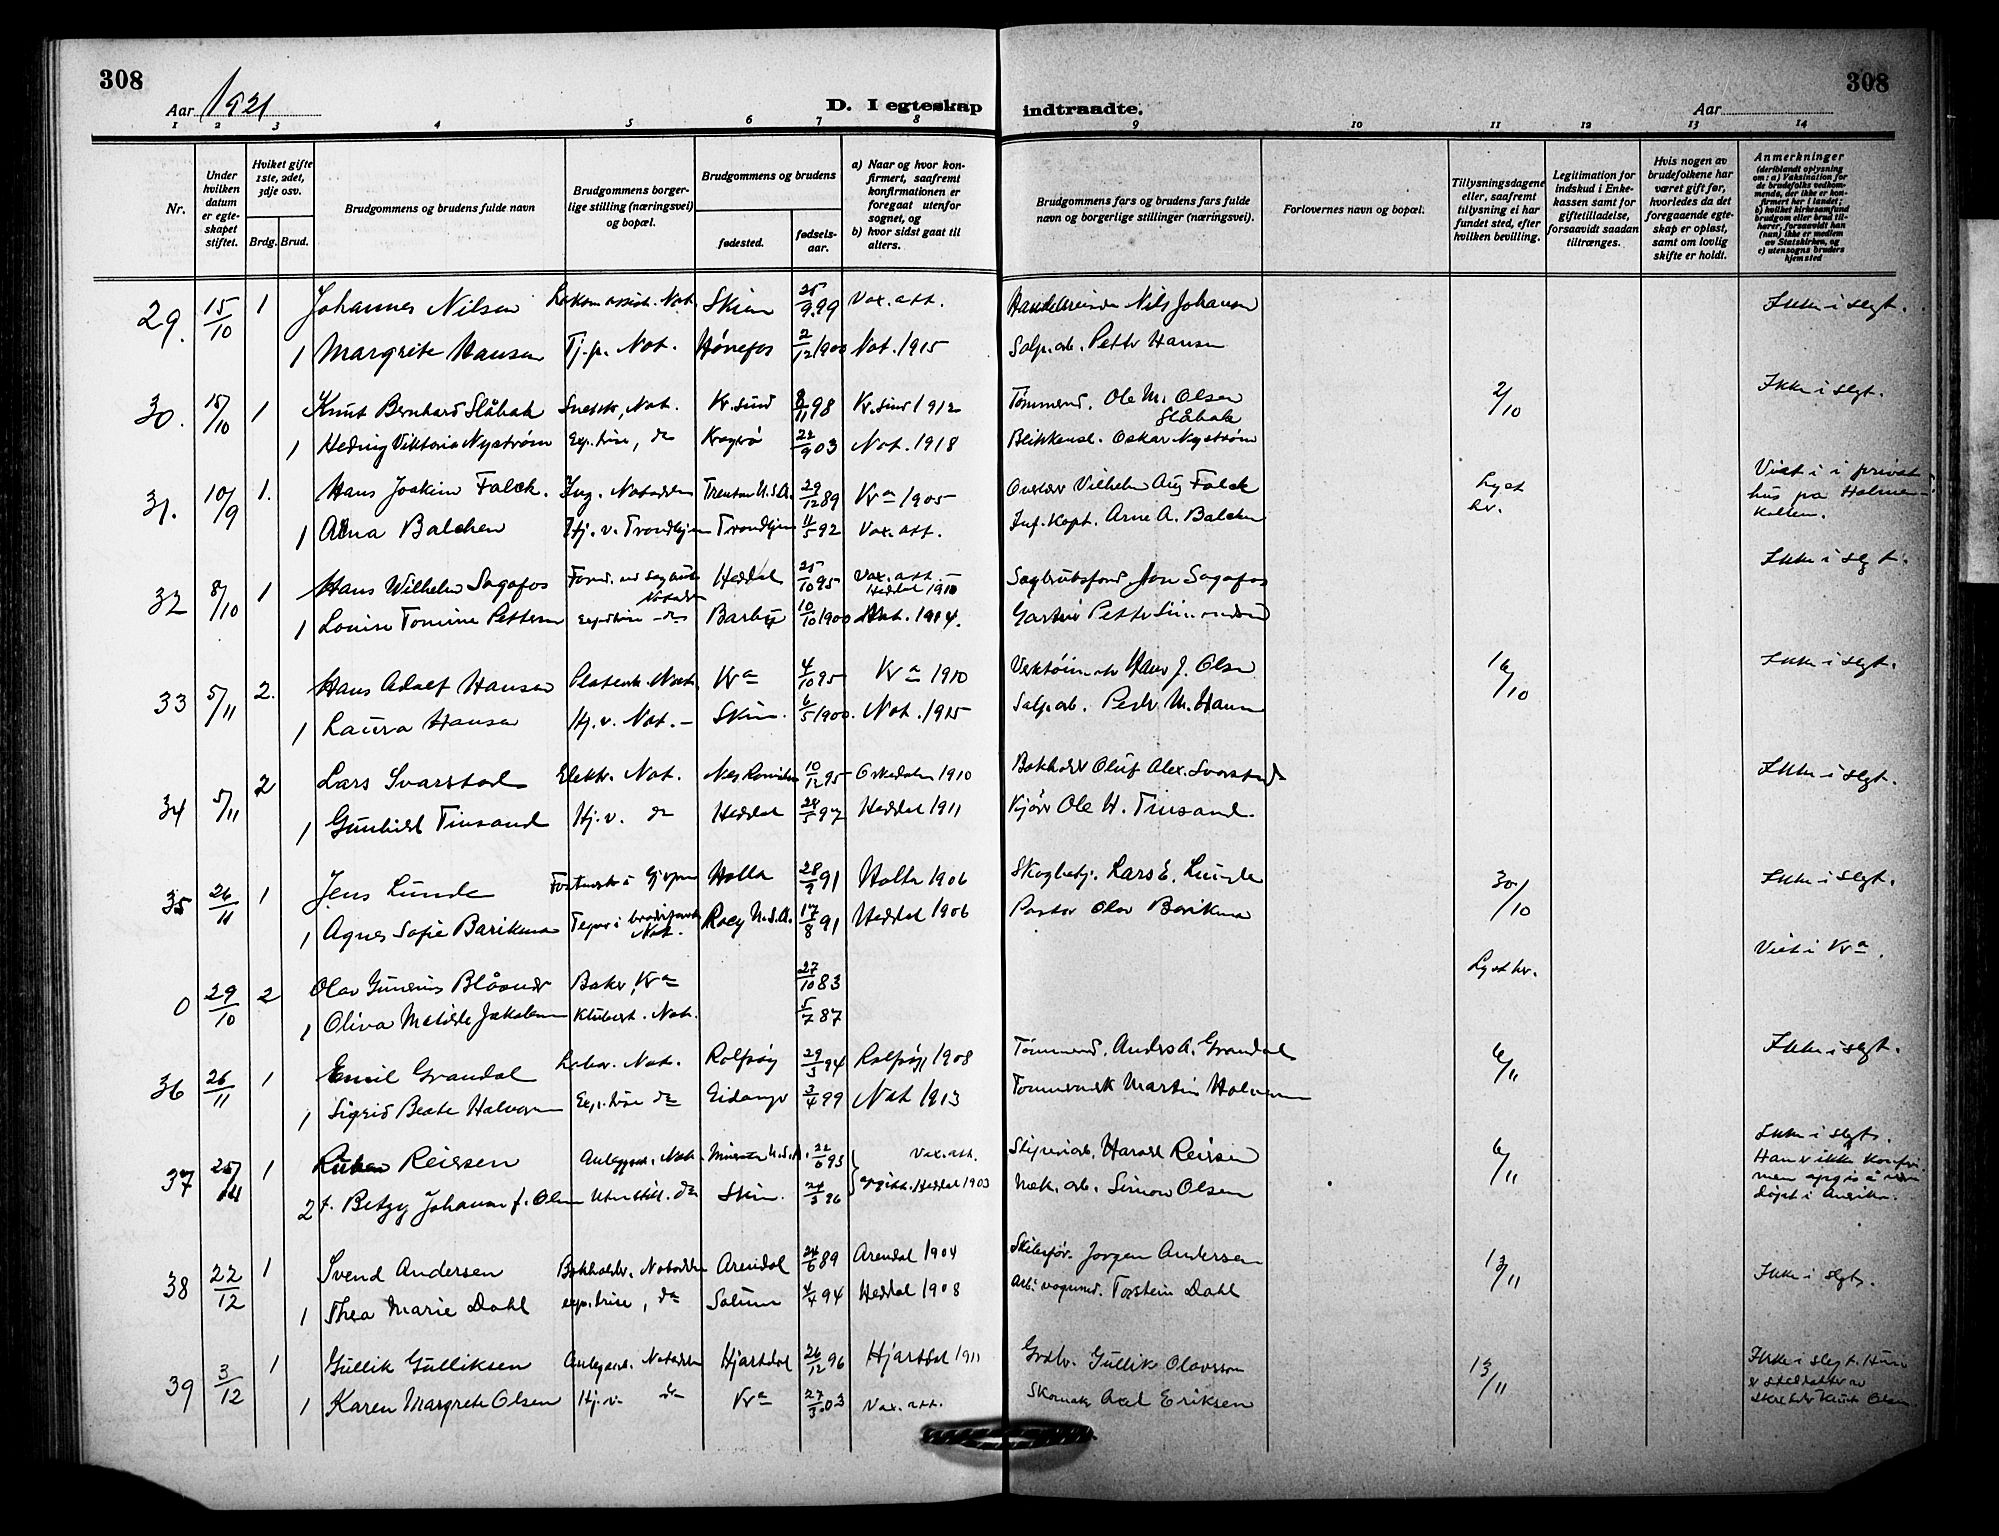 308
308
Aar 1921
D. I egteskap indtraadte.
Aar
1 2 3 4 5 6 7 8 9 10 11 12 13 14
Nr.
Under hvilken datum er egteskapet stiftet.
Hvilket gifte 1ste, 2det, 3dje osv.
Brdg. Brud.
Brudgommens og brudens fulde navn
Brudgommens borgerlige stilling (næringsvei) og bopæl.
Brudgommens og brudens
fødested.
fødselsaar.
a) Naar og hvor konfirmert, saafremt konfirmationen er foregaat utenfor sognet, og
b) hvor sidst gaat til alters.
Brudgommens fars og brudens fars fulde navn og borgerlige stillinger (næringsvei).
Forlovernes navn og bopæl.
Tillysningsdagene eller, saafremt tillysning ei har fundet sted, efter hvilken bevilling.
Legitimation for indskud i Enkekassen samt for giftetilladelse, forsaavidt saadan tiltrænges.
Hvis nogen av brudefolkene har været gift før, hvorledes da det foregaaende egteskap er opløst, samt om lovlig skifte er holdt.
Anmerkninger (deriblandt oplysning om: a) Vaksination for de brudefolks vedkommende, der ikke er konfirmert her i landet; b) hvilket kirkesamfund brudgom eller brud tilhører, forsaavidt han (hun) ikke er medlem av Statskirken, og c) utensogns bruders hjemsted
29. 15/10 1 Johannes Nilsen Not. Skien 25/9 99 Vax. att. Nils Johansen Ikke i slegt.
1 Margrete Hansen Tj.p. Not. Hønefos 2/12 1900 Not. 1915 Salp. arb. Petter Hansen
30. 15/10 1 Knut Bernhard Slåbak Snekker, Not. Kr.sund 8/11 98 Kr.sund 1912 Tømmerm. Ole M. Olsen Slåbak 2/10 Ikke i slegt.
1 Hedvig Viktoria Nystrøm Exp.trise, do Kragerø 22/9 03 Not. 1918 Blikkensl. Oskar Nystrøm
31. 10/9 1. Hans Joakim Falck. Ing. Notodden Trenton U.S.A. 29/12 89 Kra 1905 Vilhelm Aug Falck Lyst hr. Viet i i privat hus på Holmenkollen.
1 Anna Balchen Hj. v. Trondhjem Trondhjem 11/5 92 Vax. att. Inf. Kapt. Arne A. Balchen
32 8/10 1 Hans Wilhelm Sagafos Notodden Heddal 25/10 95 Vax. att. Heddal 1910 Jon Sagafos Ikke i slegt.
1 Louise Tomine Pettersen do Barbu 10/10 1900 Not. 1914. Gartner Petter
33 5/11 2. Hans Adolf Hansen Not. Kra 4/10 95 Kra 1910 Hans J. Olsen 16/10 Ikke i slegt.
1 Laura Hansen Hj. v. Not. Skien. 6/5 1900. Not. 1915 Salp. arb. Peder M. Hansen
34 5/11 2 Lars Svarstad Elektr. Not. Nes Romerike 10/12 95 Orkedalen 1910 Bokholder Oluf Alex. Svarstad Ikke i slegt.
1 Gunhild Tinsand Hj. v. do Heddal 28/5 97 Heddal 1911 Kjører Ole H. Tinsand.
35 26/11 1 Jens Lunde Gjerpen Holla 28/9 91 Holla 1906 Skogbetj. Lars E. Lunde 30/10 Ikke i slegt.
1 Agnes Sofie Barikmo Not. U.S.A. 17/8 91 Heddal 1906 Pastor Olav Barikmo
0 29/10 2 Olav Gunerius Baker, Kra 27/10 83 Lyst hr. Viet i Kra.
1 Oliva Matilde Jakobsen Not. 5/7 87
36 26/11 1 Emil Grandal Labor. Not. Rolfsøy 29/3 94 Rolfsøy 1908 Tømmerm. Anders A. Grandal 6/11 Ikke i slegt.
1 Sigrid Beate Halvorsen Exp.trise do Eidanger 3/4 99 Not 1913 Martin Halvorsen
37 25/11 1 Ruben Reiersen Anleggsarb. Not. U.S.A. 22/6 93 Vax. att. Harald Reiersen 6/11 Ikke i slegt.
2 f. Betzy Johanne f. Olsen Uten still. do Skien. 24/3 86 Heddal 1903 Mek. arb. Simon Olsen
38 22/12 1 Svend Andersen Bokholder. Notodden Arendal 24/6 89 Arendal 1904 Skibsfør. Jørgen Andersen 13/11 Ikke i slegt.
1 Thea Marie Dahl exp.trise, do Solum 4/4 94 Heddal 1908 Torstein Dahl
39 3/12 1 Gullik Gulliksen Anlegsarb. Notodden Hjartdal 26/12 96 Hjartdal 1911 Grdbr. Gullik Olavsson 13/11 Ikke i slegt. Hun er stedatter av Knut Olsen.
1 Karen Margrete Olsen Hj. v. do Kra 27/3 03 Vax. att. Skomaker Axel Eriksen